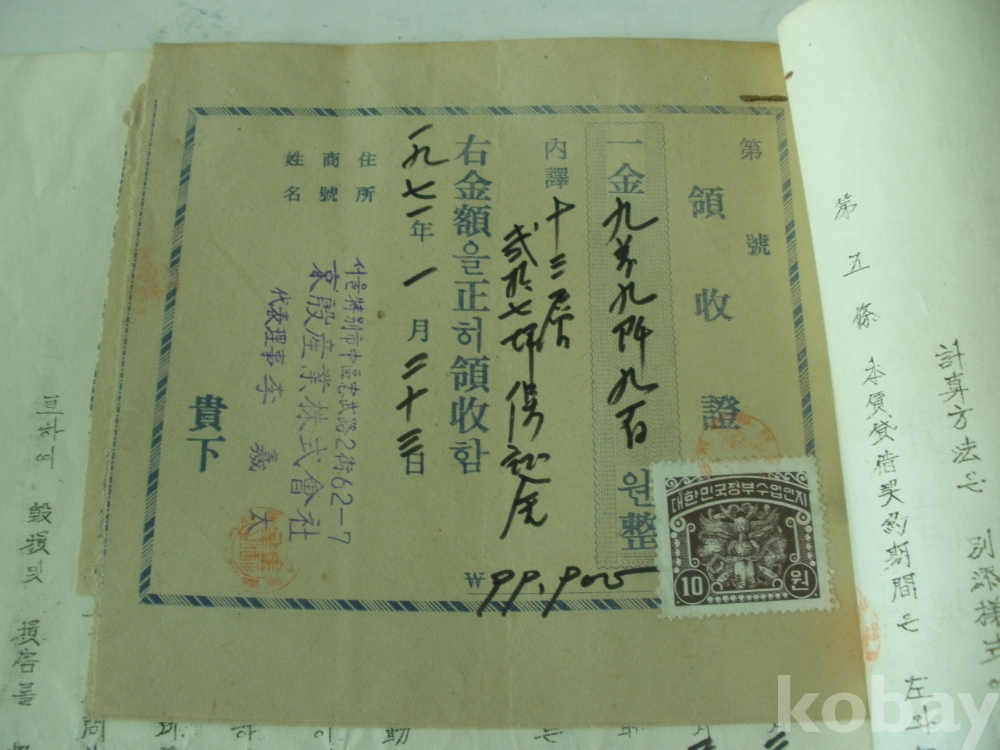 計算方法은 別添樣式
第五條 本賃貸借契約期間은
左와
第 號
領收證
一金九萬九阡九百원整
₩99,900
內譯 十三层
貳拾七坪保証金
右金額을正히領收함
一九七一年 一月二十三日
住所 서울特別市中區忠武路2街62-7
商號 京殷産業株式會社
姓名 代表理事 李 義 大
貴下
대한민국정부수입인지
10 원
毀損및 損害를
kobay